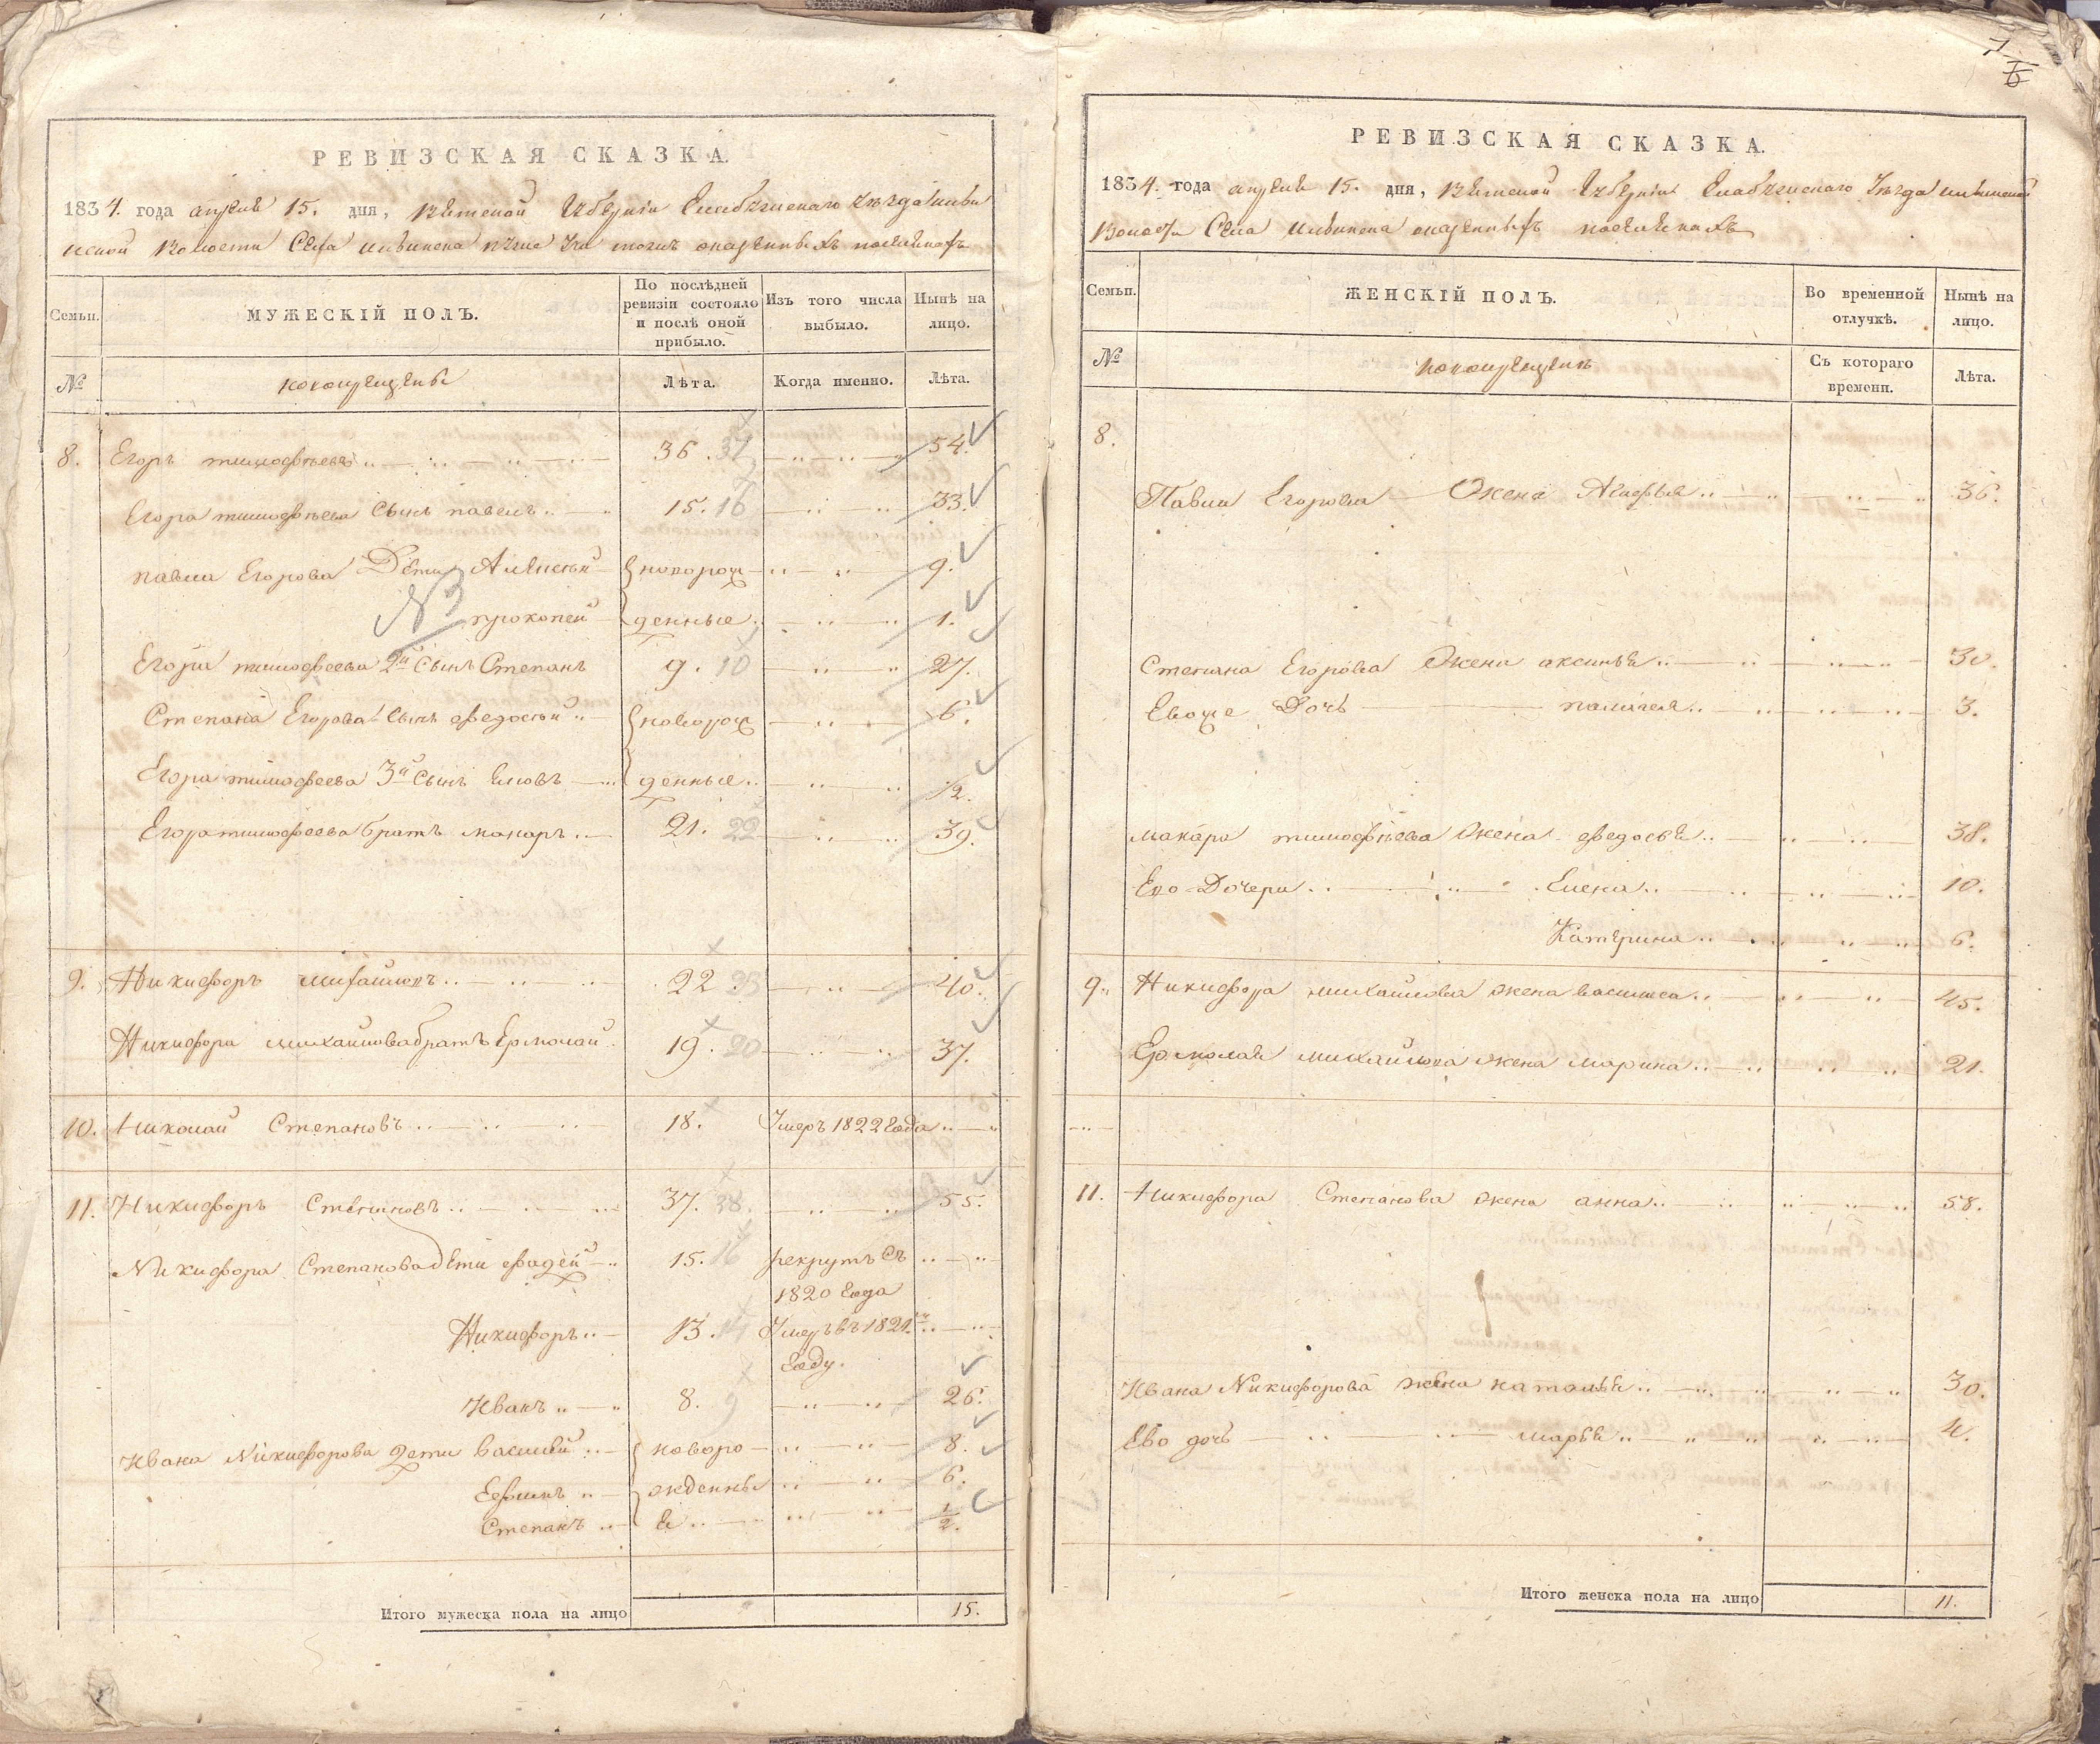 РЕВИЗСКАЯ СКАЗКА.
1834. года апреля 15. дня, Вятской Губернии Елабужскаго уѣзда
волости Села казенныхъ поселянахъ
Семьи.
МУЖЕСКІЙ ПОЛЪ.
По послѣдней ревизіи состояло и послѣ оной прибыло.
Изъ того числа выбыло.
Нынѣ на лицо.
№
новокрещены
Лѣта.
Когда именно.
Лѣта.
8. Егоръ тимофѣевъ 36. 37 54.
Егора тимофѣева Сынъ павелъ 15. 16 33.
павла Егорова Дѣти Алексѣй новорож 9.
№3
прокопей денные 1.
Егора тимофеева 2й Сынъ Степанъ 9. 10 27.
Степана Егорова Сынъ федосѣй новорож 6.
Егора тимофеева 3й Сынъ денные 12.
Егора тимофеева братъ макаръ 21. 22 39.
9. Никифоръ михайловъ 22 23 40.
Никифора михайлова братъ Ермолай 19. 20 37.
10. Николай Степановъ 18. Умеръ 1822 года
11. Никифоръ Степановъ 37. 38. 55.
Никифора Степанова дѣти фадей 15. 16 рекрутъ съ
1820 года
Никифоръ 13. 14 Умеръ въ 1821м
Году.
Иванъ 8. 9 26.
Ивана Никифорова дети василий новоро 8.
Ефимъ жденны 6.
Степанъ е 1/2.
Итого мужеска пола на лицо 15.
7
6
РЕВИЗСКАЯ СКАЗКА.
1834. года апреля 15. дня, Вятской Губернии Елабужскаго Уѣзда
Волости Села казенныхъ поселянахъ
Семьи.
ЖЕНСКІЙ ПОЛЪ.
Во временной отлучкѣ.
Нынѣ на лицо.
№
новокрещенъ
Съ котораго времени.
Лѣта.
8.
Павла Егорова Жена Агафья 36.
Степана Егорова Жена аксинья 30.
Евоже Дочь палагея 3.
макара тимофѣева Жена федосья 38.
Ево Дочери Елена 10.
Катерина 6.
9. Никифора михайлова жена василиса 45.
Ермолая михайлова жена марина 21.
11. Никифора Степанова жена анна 58.
Ивана Никифорова жена наталья 30.
Ево дочь марья 4.
Итого женска пола на лицо 11.